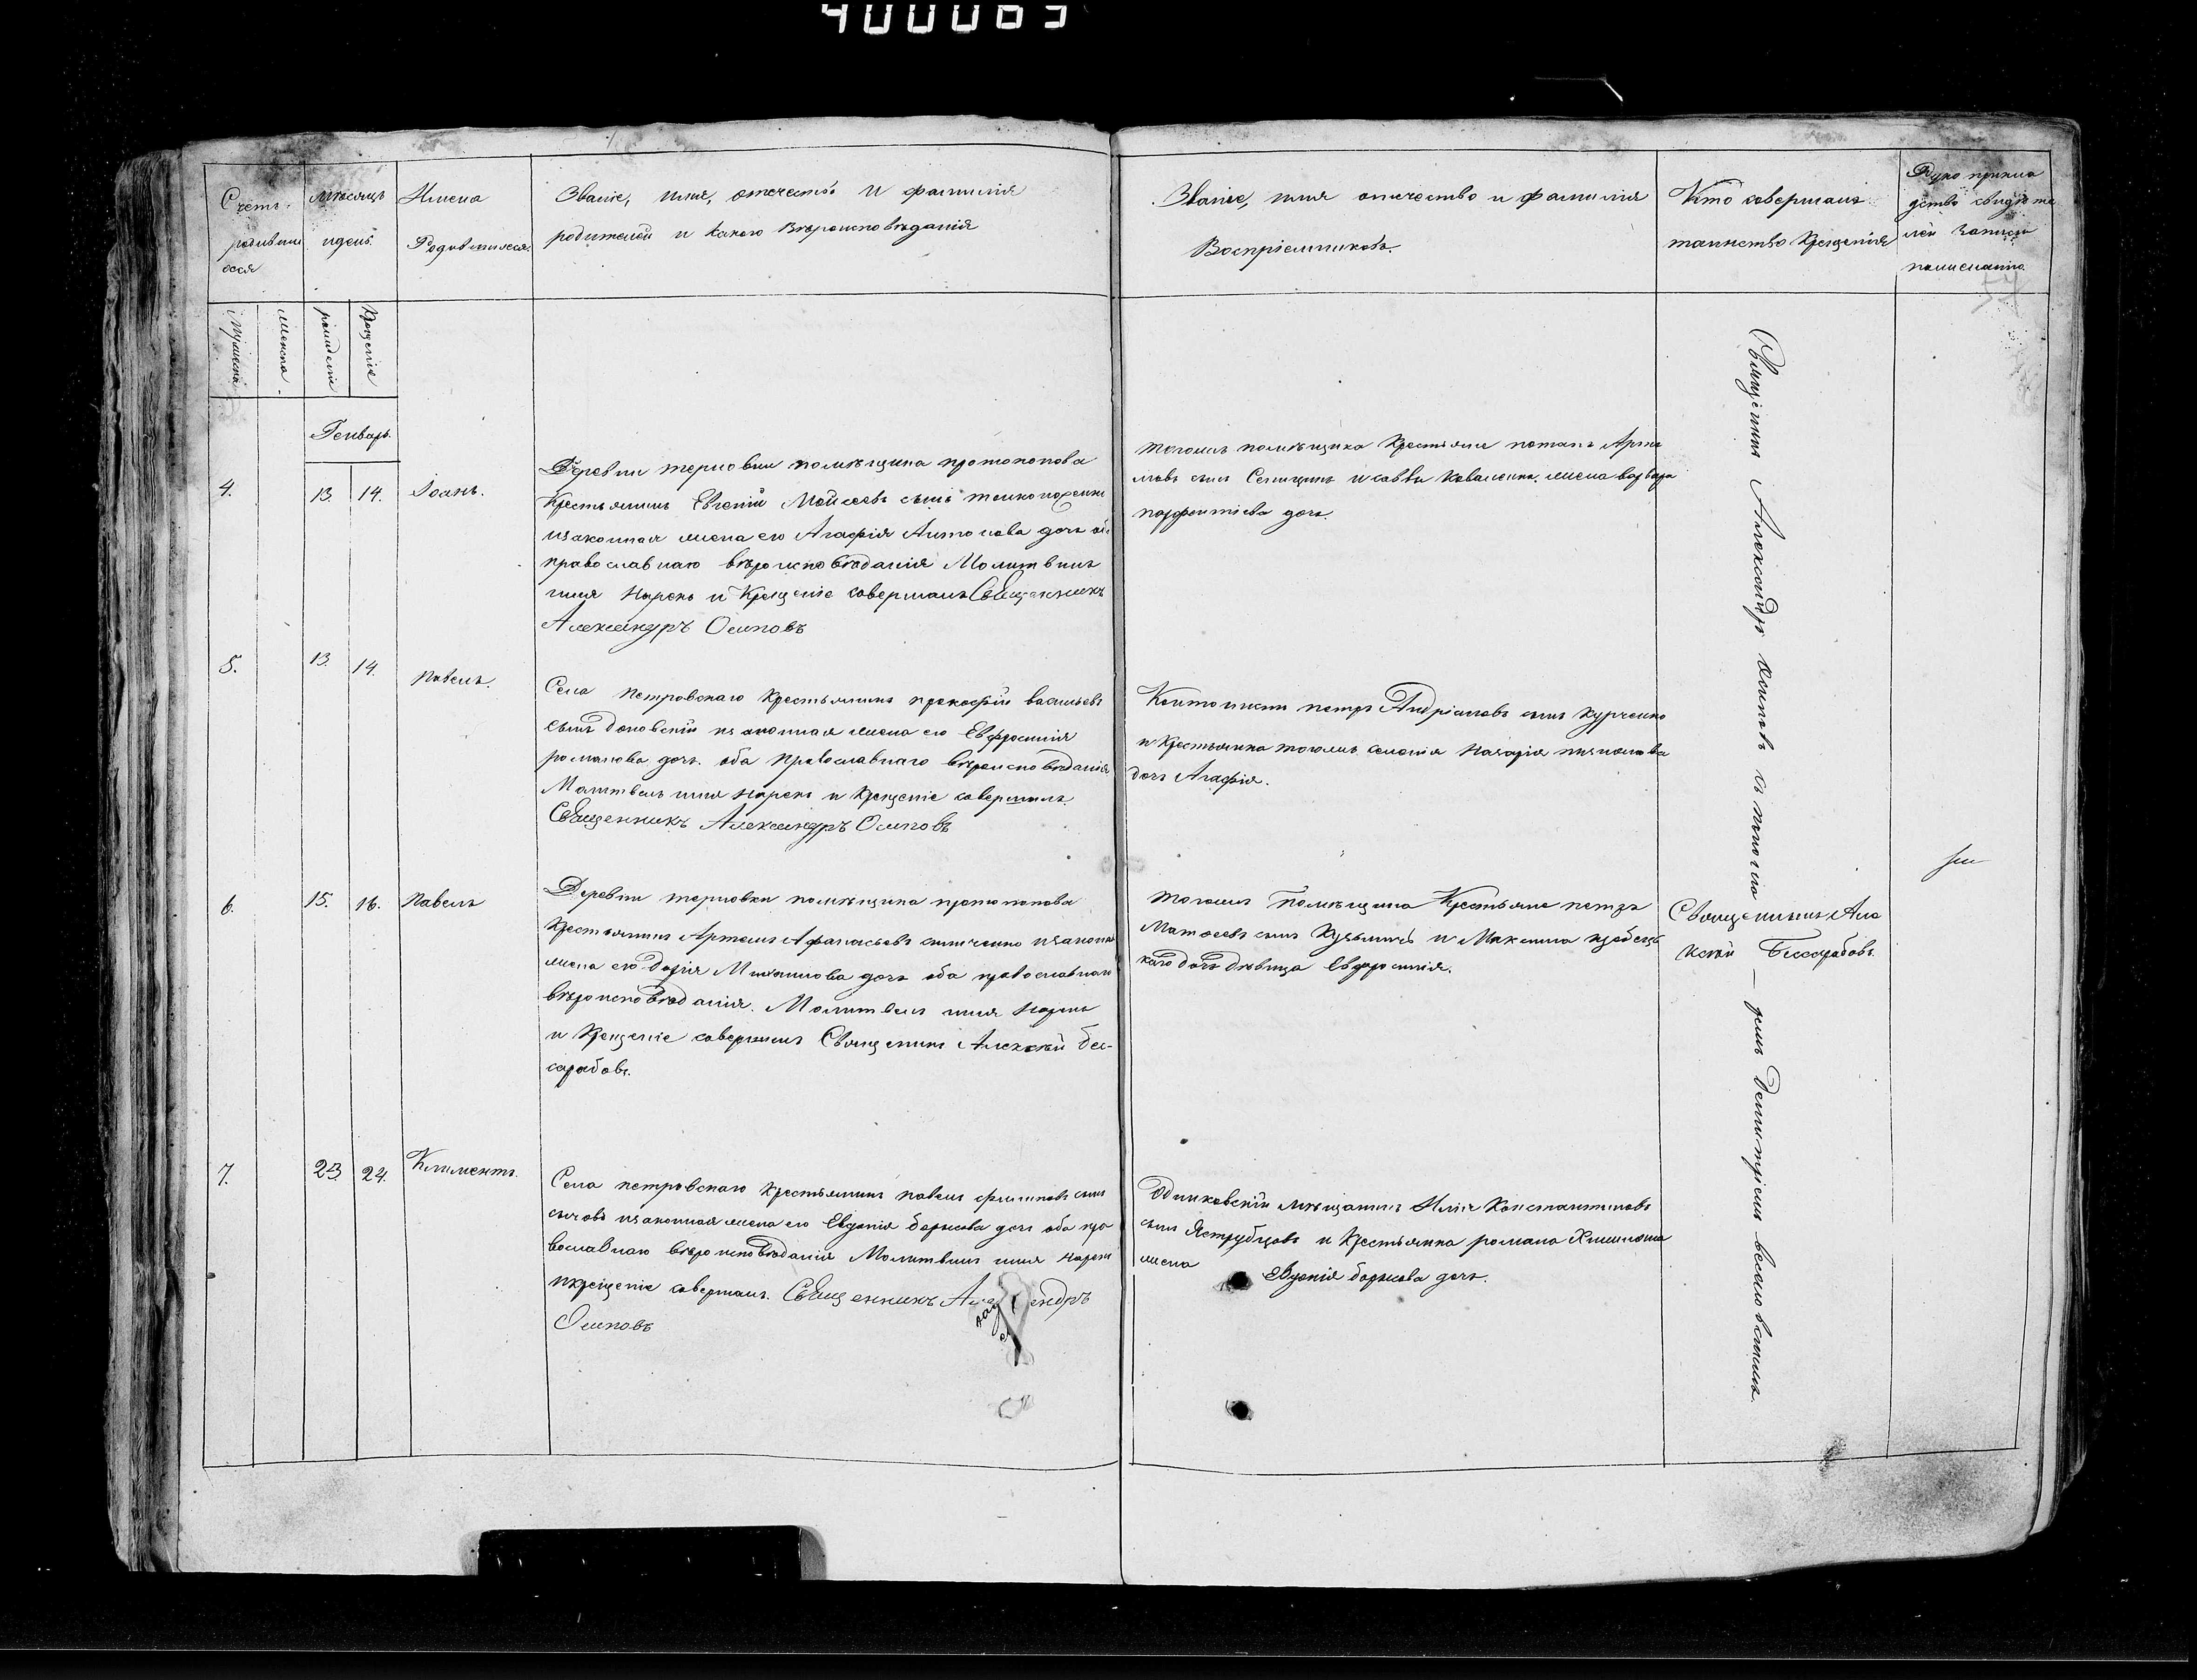 400063
Счетъ
родивши
хся
мѣсяцъ
и день.
Имена
Родившихся.
Званіе, имя, отечество и фамилія
родителей и какого вѣроисповѣданія
Званіе, имя отчество и фамилія
Воспріемниковъ.
Кто совершалъ
таинство крещенія
Руко прикла
дство свидѣте
лей записи
по желанію
57
Мужеска
женска.
рожденіе
Крещеніе
Генварь.
4.
13.
14.
Іоаннъ.
Деревни терновки помѣщика протопопова
Крестьянинъ Евгеній Моисеевъ сынъ
и законная жена его Агафія Антонова дочь об
православнаго вѣроисповѣданія Молитвилъ
имя нарекъ и Крещеніе совершалъ Священникъ
Александръ Осиповъ
тогожъ помѣщика Крестьяне потапъ Арта
мовъ сынъ и саввы Коваленка жена варвара
парфентіева дочь.
5.
13.
14.
Павелъ.
Села Петровскаго Крестьянинъ прокофій васильевъ
сынъ и законная жена его Евфросинія
романова дочь. оба Православнаго вѣроисповѣданія
Молитвилъ имя нарекъ и Крещеніе совершилъ
Священникъ Александръ Осиповъ
петръ Андріановъ сынъ Курченко
и Крестьянка тогожъ селенія Назарія
дочь Агафія.
6.
15.
16.
Павелъ
Деревни терновки помѣщика протопопова
Крестьянинъ Артемъ Афанасьевъ и закона
жена его Дарія Михаилова дочь оба православнаго
вѣроисповѣданія. Молитвилъ имя нарекъ
и Крещеніе совершилъ Священникъ Алексѣй Бес-
сарабовъ.
тогожъ Помѣщика Крестьяне петръ
Матѳеевъ сынъ и Максима
каго дочь дѣвица Евфросинія.
Священникъ Але
ксѣй Бессарабовъ.
7.
23.
24.
Климентъ.
Села петровскаго Крестьянинъ павелъ филиповъ сынъ
сычовъ и законная жена его Евдокія борисова дочь оба пра
вославнаго вѣроисповѣданія Молитвилъ имя нарекъ
и крещеніе совершалъ. Священникъ Александръ
Осиповъ
мѣщанинъ Илія Константиновъ
сынъ Яструбцовъ и Крестьянина романа
жена Евдокія борисова дочь.
Священникъ Александръ Осиповъ съ
Димитріемъ